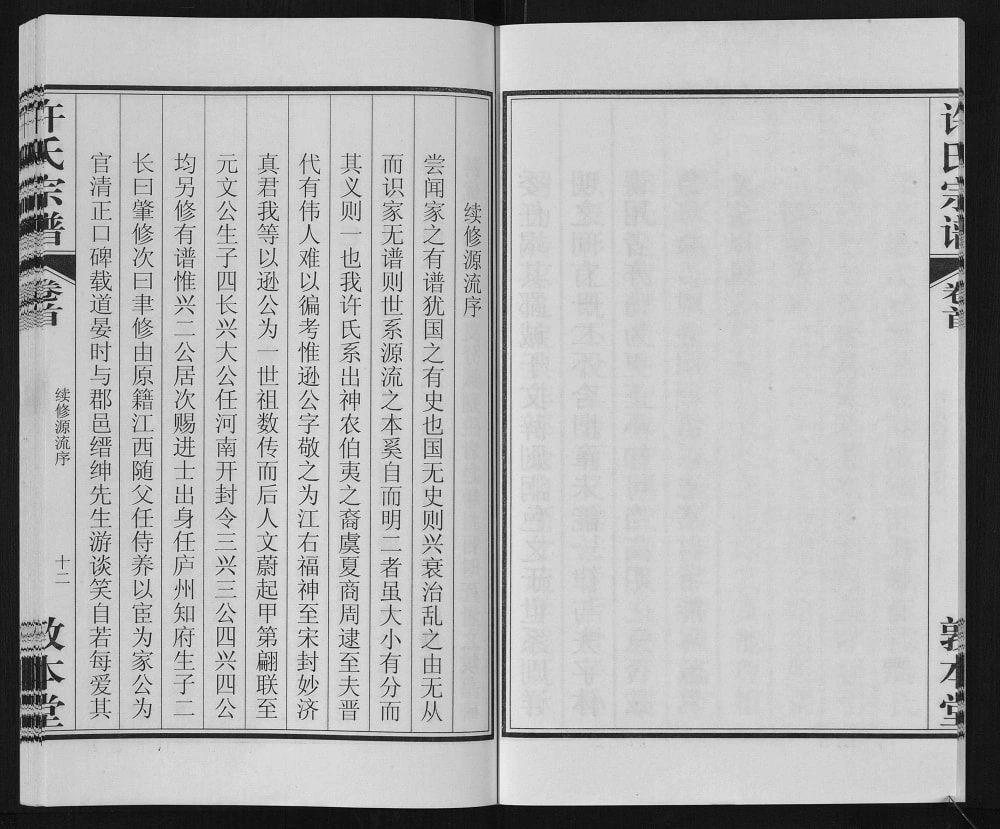 许氏宗谱
卷首
敦本堂
续修源流序
尝闻家之有谱犹国之有史也国无史则兴衰治乱之由无从
而识家无谱则世系源流之本奚自而明二者虽大小有分而
其义则一也我许氏系出神农伯夷之裔虞夏商周逮至夫晋
代有伟人难以徧考惟逊公字敬之为江右福神至宋封妙济
真君我等以逊公为一世祖数传而后人文蔚起甲第翩联至
元文公生子四长兴大公任河南开封令三兴三公四兴四公
均另修有谱惟兴二公居次赐进士出身任庐州知府生子二
长曰肇修次曰聿修由原籍江西随父任侍养以宦为家公为
官清正口碑载道晏时与郡邑缙绅先生游谈笑自若每爱其
续修源流序
十二
许氏宗谱
卷首
敦本堂